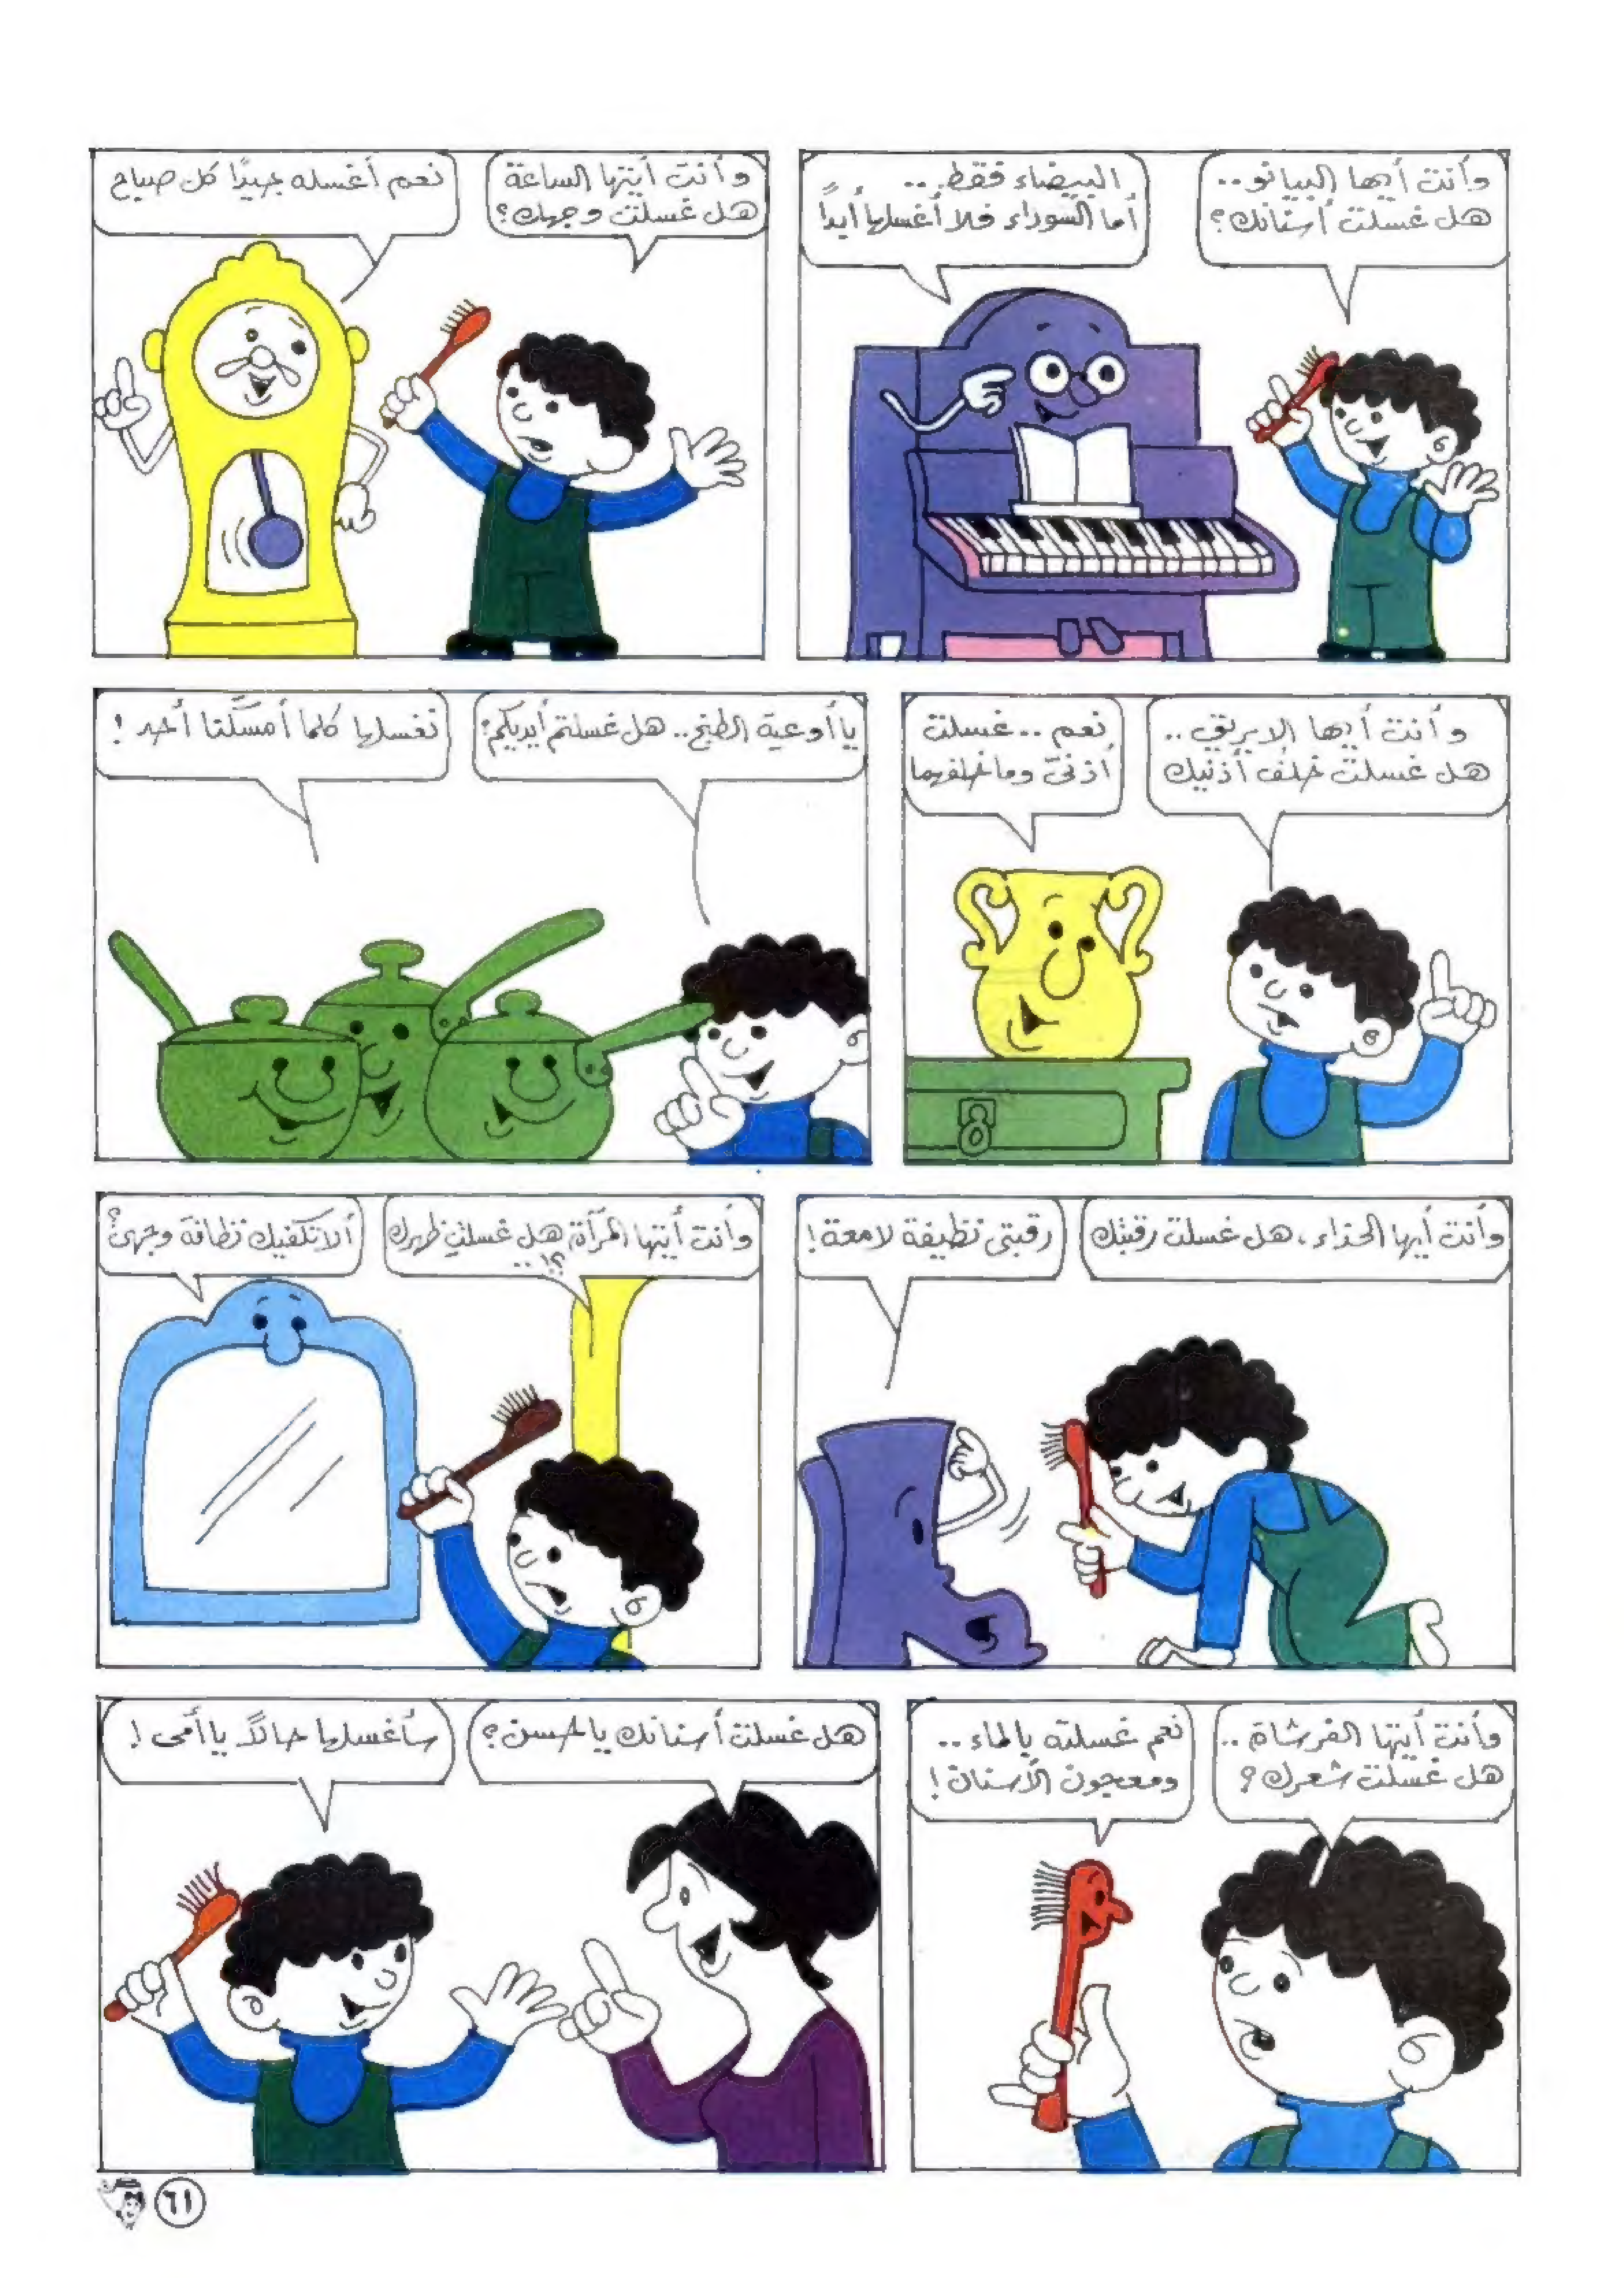 وأنت أيها البيانو..
هل غسلت أسنانك؟
البيضاء فقط...
أما السوداء فلا أغسلها أبداً
وأنت أيتها الساعة
هل غسلت وجهك؟
نعم أغسله جيدًا كل صباح
وأنت أيها الابريق..
هل غسلت خلف أذنيك
نعم .. غسلت
أذنيّ وما خلفهما
يا أوعية الطبخ.. هل غسلتم أيديكم؟
نغسلها كلما أمسكنا أحد !
وأنت أيها الحذاء، هل غسلت رقبتك
رقبتي نظيفة لامعة !
وأنت أيتها المرآة هل غسلتِ ظهرك
؟!..
ألا تكفيك نظافة وجهي؟
وأنت أيتها الفرشاة ..
هل غسلت شعرك؟
نعم غسلته بالماء ..
ومعجون الأسنان !
هل غسلت أسنانك يا حسن؟
سأغسلها حالاً يا أمي !
٦١